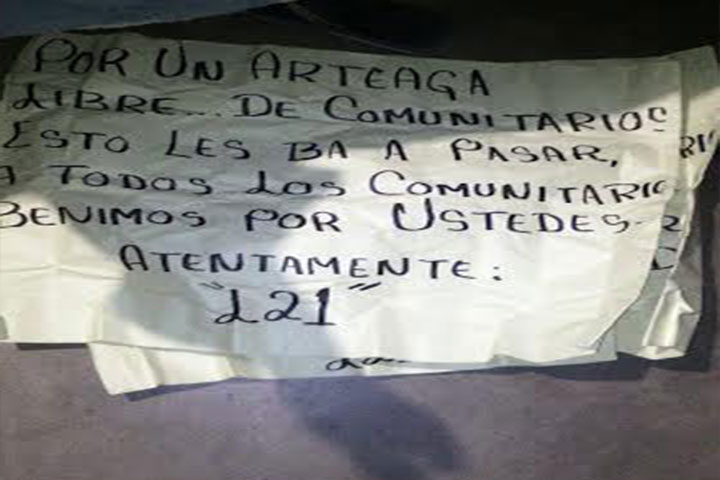 POR UN ARTEAGA
LIBRE... DE COMUNITARIOS
ESTO LES BA A PASAR,
A TODOS LOS COMUNITARIO
BENIMOS POR USTEDES-
ATENTAMENTE:
"L21"